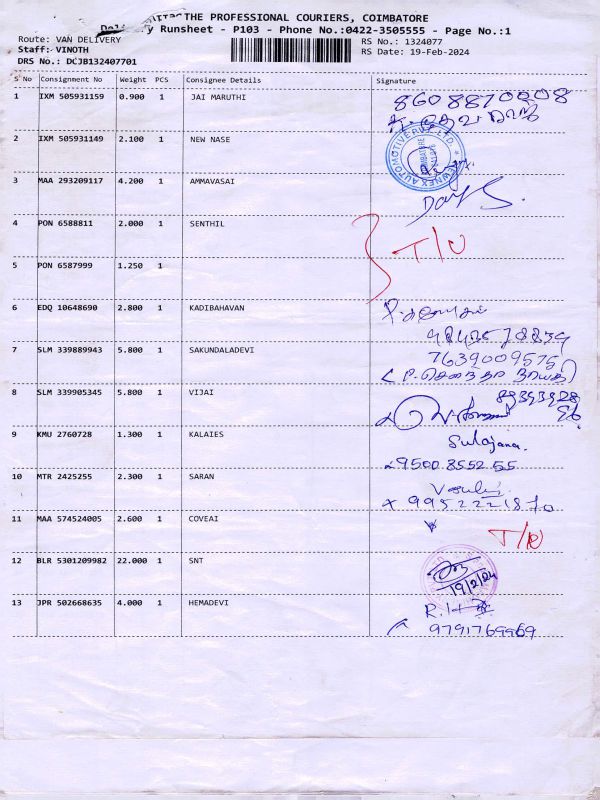 THE PROFESSIONAL COURIERS, COIMBATORE
Delivery Runsheet - P103 - Phone No.:0422-3505555 - Page No.:1
Route: VAN DELIVERY
RS No.: 1324077
Staff: VINOTH
RS Date: 19-Feb-2024
DRS No.: DCJB132407701
S No Consignment No Weight PCS Consignee Details Signature
1 IXM 505931159 0.900 1 JAI MARUTHI 8608870008
2 IXM 505931149 2.100 1 NEW NASE
AUTOMOTIVE PVT. LTD.
COIMBATORE
3 MAA 293209117 4.200 1 AMMAVASAI
4 PON 6588811 2.000 1 SENTHIL T/U
5 PON 6587999 1.250 1
6 EDQ 10648690 2.800 1 KADIBAHAVAN
7 SLM 339889943 5.800 1 SAKUNDALADEVI 7639009575
8 SLM 339905345 5.800 1 VIJAI
9 KMU 2760728 1.300 1 KALAIES Sulajana
9500855255
10 MTR 2425255 2.300 1 SARAN
9952221870
11 MAA 574524005 2.600 1 COVEAI
12 BLR 5301209982 22.000 1 SNT
19/2/24
13 JPR 502668635 4.000 1 HEMADEVI
9791769969